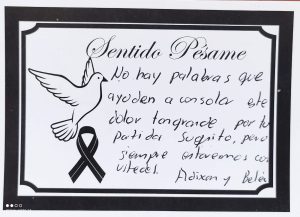 Sentido Pésame
No hay palabras que
ayuden a consolar este
dolor tan grande, por tu
partida Sugrito, pero
siempre estaremos con
ustedes. Adixan y Belén